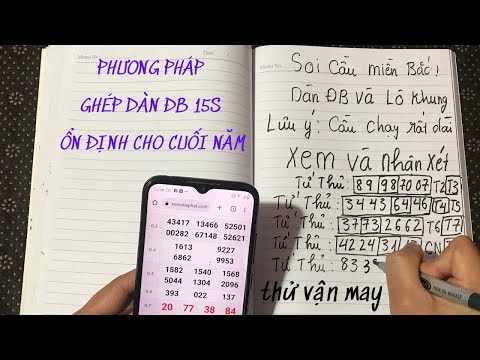 PHƯƠNG PHÁP
GHÉP DÀN ĐB 15S
ỔN ĐỊNH CHO CUỐI NĂM
Soi Cầu miền Bắc!
Dàn ĐB và Lô Khung
Lưu ý: Cầu chạy rất dài
Xem và Nhận Xét
Tứ Thủ: 89 98 70 07 T2 T3
Tứ Thủ: 34 43 64 46 T4 T5
Tứ Thủ: 37 73 26 62 T6 T7
Tứ Thủ: 42 24 31 CN
Tứ Thủ: 83 3
thử vận may
G.3 43417 13466 52501
00282 67148 52621
G.4 1613 9227
6862 9953
G.5 1582 1540 1568
5044 1304 2096
G.6 393 022 137
G.7 20 77 38 84